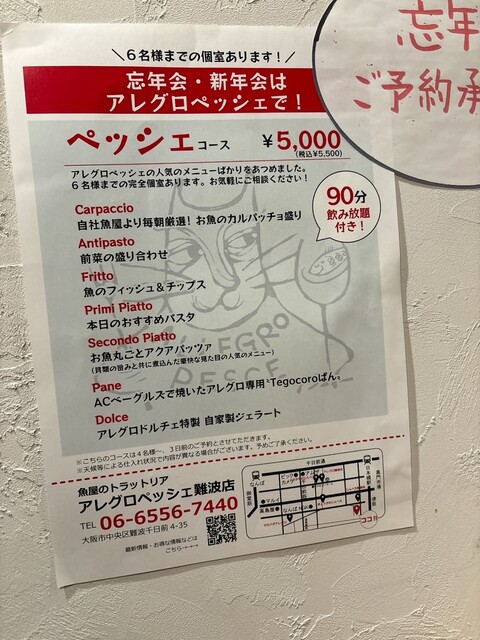 ＼６名様までの個室あります！／
忘年会・新年会は
アレグロペッシェで！
ペッシェコース ￥5,000
(税込¥5,500)
アレグロペッシェの人気のメニューばかりをあつめました。
６名様までの完全個室あります。お気軽にご相談ください！
90分
飲み放題
付き！
Carpaccio
自社魚屋より毎朝厳選！お魚のカルパッチョ盛り
Antipasto
前菜の盛り合わせ
Fritto
魚のフィッシュ＆チップス
Primi Piatto
本日のおすすめパスタ
Secondo Piatto
お魚丸ごとアクアパッツァ
(貝類の旨みと共に煮込んだ豪快な見た目の人気のメニュー)
Pane
ACベーグルスで焼いたアレグロ専用"Tegocoroぱん。
Dolce
アレグロドルチェ特製 自家製ジェラート
ALLEGRO
PESCE
※こちらのコースは４名様〜、３日前のご予約とさせてただきます。
※天候等による仕入れ状況で内容が異なる場合がございます。予めご了承ください。
魚屋のトラットリア
アレグロペッシェ難波店
TEL 06-6556-7440
大阪市中央区難波千日前 4-35
最新情報・お得な情報などは
こちら→→→
千日前通
なんば
ビック
カメラ
日本橋駅
黒門市場
御堂筋
マルイ
高島屋
なんばNGK
堺筋
ココ!!
忘年
ご予約承